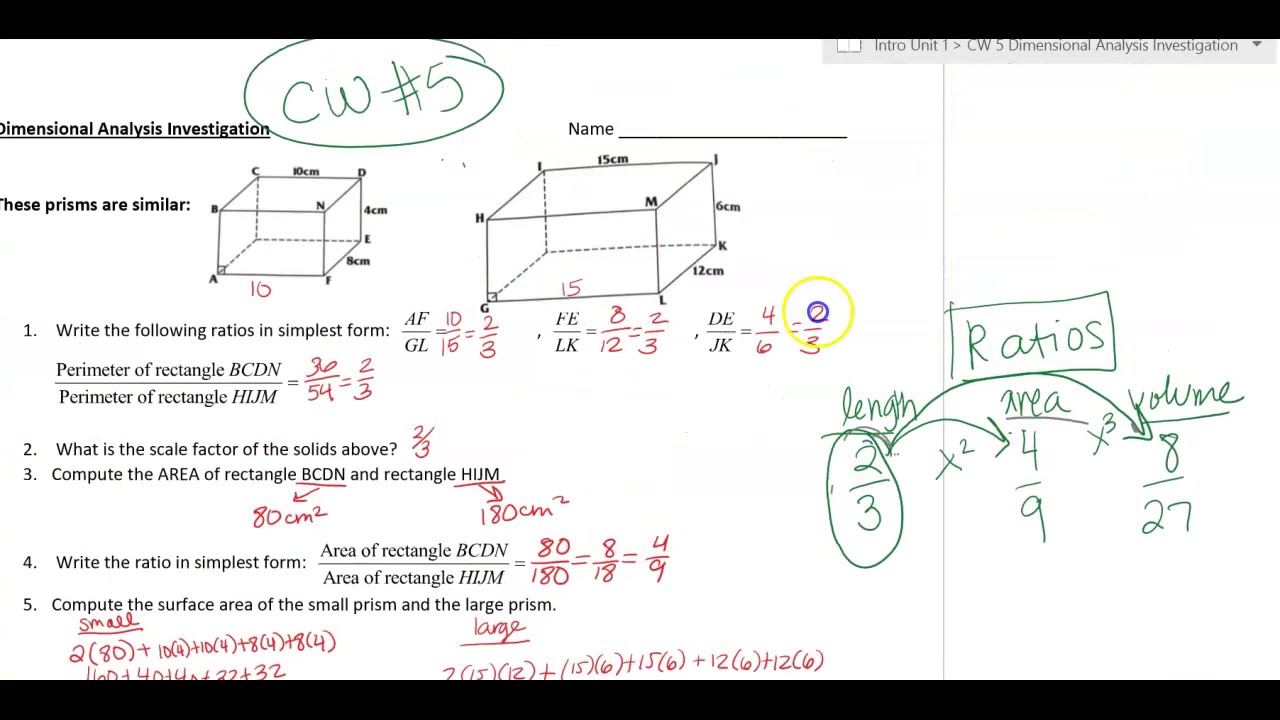 Intro Unit 1 > CW 5 Dimensional Analysis Investigation
CW #5
Dimensional Analysis Investigation
Name
These prisms are similar:
C 10cm D
B N 4cm
E
8cm
A F
10
I 15cm J
H M 6cm
K
12cm
G L
15
1. Write the following ratios in simplest form: AF/GL = 10/15 = 2/3 , FE/LK = 8/12 = 2/3 , DE/JK = 4/6 = 2/3
Perimeter of rectangle BCDN / Perimeter of rectangle HIJM = 36/54 = 2/3
2. What is the scale factor of the solids above? 2/3
3. Compute the AREA of rectangle BCDN and rectangle HIJM
80cm² 180cm²
4. Write the ratio in simplest form: Area of rectangle BCDN / Area of rectangle HIJM = 80/180 = 8/18 = 4/9
5. Compute the surface area of the small prism and the large prism.
small large
2(80) + 10(4)+10(4)+8(4)+8(4)
160+40+40+32+32
2(15)(12)+(15)(6)+15(6)+12(6)+12(6)
Ratios
length area volume
2/3 x² 4/9 x³ 8/27